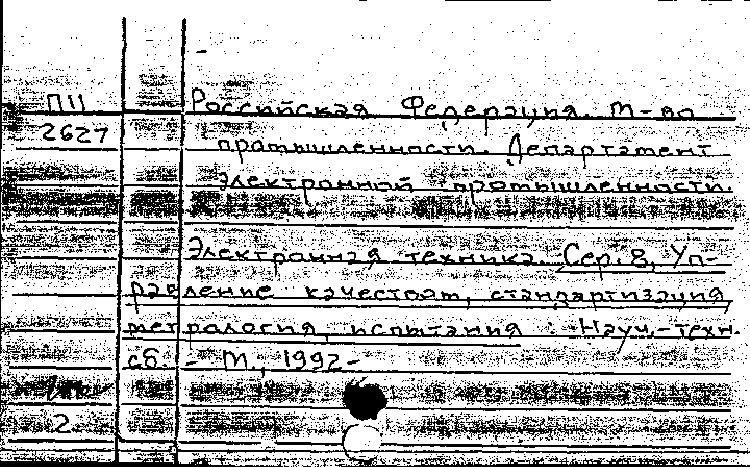 П11 Российская Федерация. М-во
2627 промышленности. Департамент
электронной промышленности.
Электронная техника. Сер. 8, Уп-
равление качеством, стандартизация,
метрология, испытания : Науч.-техн.
сб. - М., 1992-
2